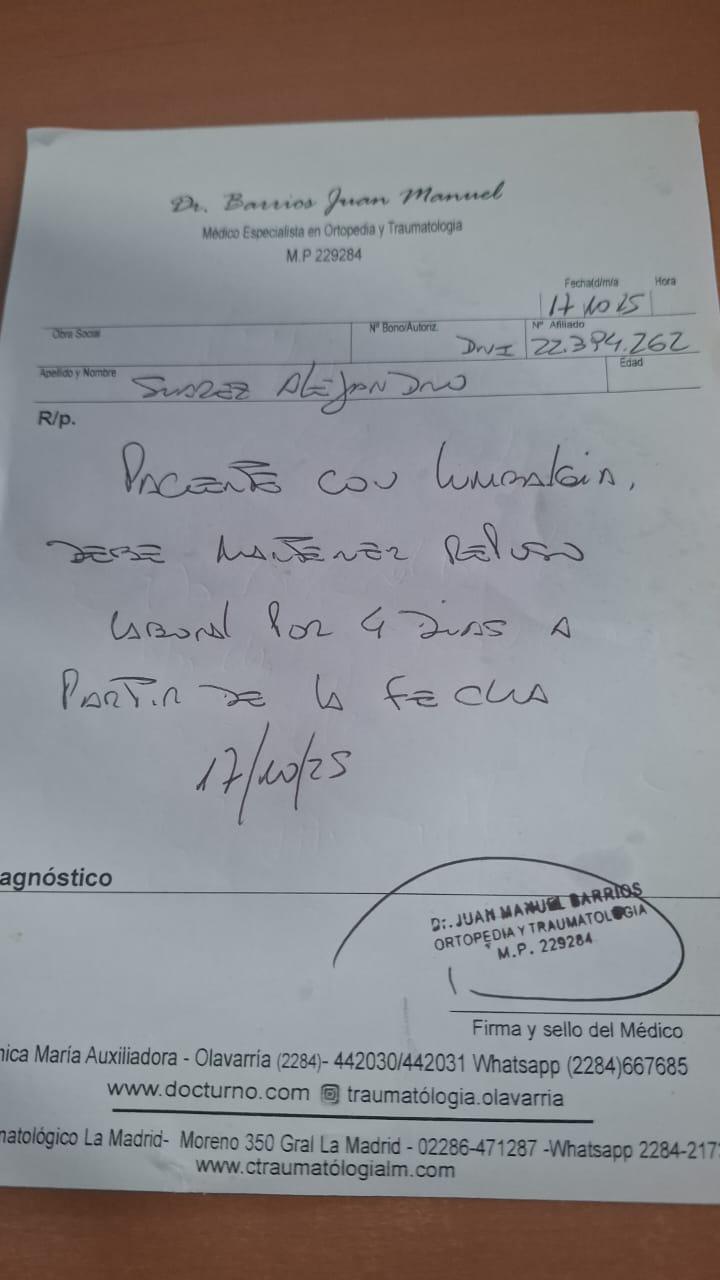 Dr. Barrios Juan Manuel
Médico Especialista en Ortopedia y Traumatología
M.P 229284
Fecha(d/m/a Hora
17 10 25
Obra Social Nº Bono/Autoriz. Nº Afiliado
DNI 22.394.262
Apellido y Nombre Edad
SUAREZ ALEJANDRO
R/p.
PACIENTE CON lUMBALGIA,
DEBE MANTENER REPOSO
LABORAl POR 4 DIAS A
PARTIR DE LA FECHA
17/10/25
agnóstico
Dr. JUAN MANUEL BARRIOS
ORTOPEDIA Y TRAUMATOLOGIA
M.P. 229284
Firma y sello del Médico
nica María Auxiliadora - Olavarría (2284)- 442030/442031 Whatsapp (2284)667685
www.docturno.com traumatólogia.olavarria
matológico La Madrid- Moreno 350 Gral La Madrid - 02286-471287 -Whatsapp 2284-217
www.ctraumatólogialm.com